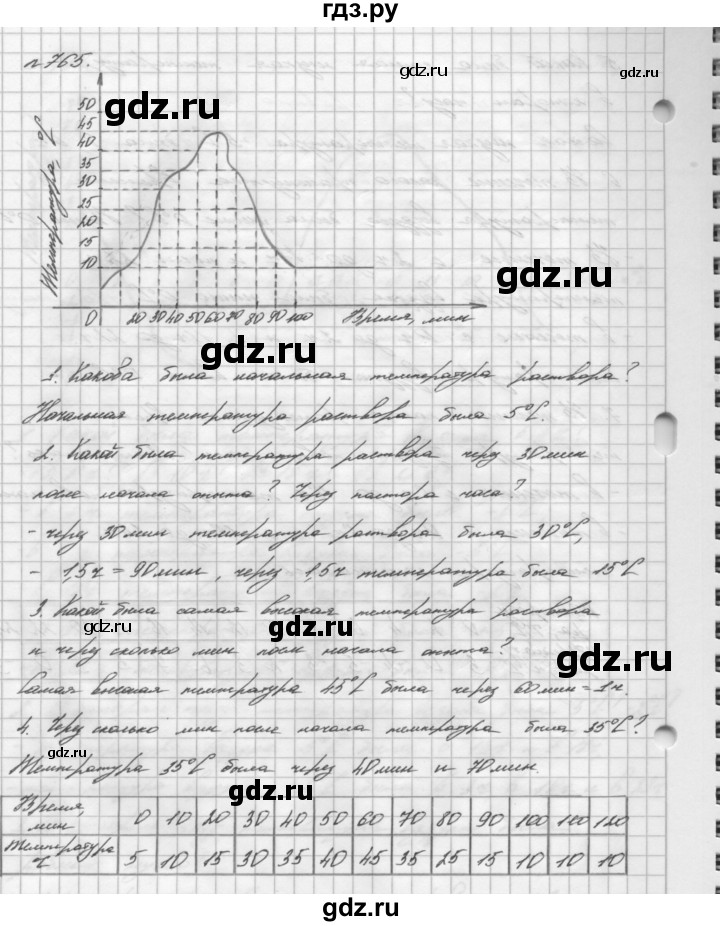 гдз.ру
№765.
gdz.ru
gdz.ru
Температура, °С
50
45
40
35
30
25
20
15
10
0 20 30 40 50 60 70 80 90 100 Время, мин
gdz.ru
gdz.ru
1. Какова была начальная температура раствора?
Начальная температура раствора была 5°С.
2. Какой была температура раствора через 30 мин
после начала опыта? Через полтора часа?
- через 30 мин температура раствора была 30°С,
- 1,5 ч = 90 мин, через 1,5 ч температура была 15°С
3. Какой была самая высокая температура раствора
gdz.ru
gdz.ru
и через сколько мин после начала опыта?
Самая высокая температура 45°С была через 60 мин = 1 ч.
4. Через сколько мин после начала температура была 35°С?
Температура 35°С была через 40 мин и 70 мин.
gdz.ru
gdz.ru
Время, мин 0 10 20 30 40 50 60 70 80 90 100 110 120
Температура °С 5 10 15 30 35 40 45 35 25 15 10 10 10
gdz.ru
gdz.ru